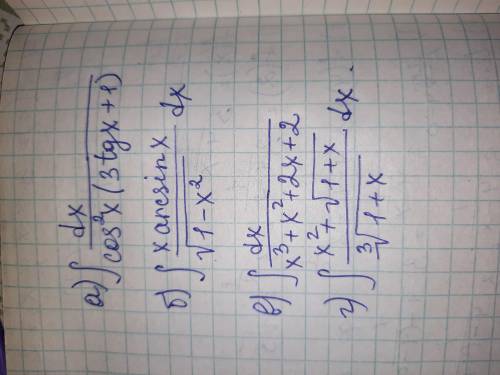 а) ∫ dx / (cos²x (3tgx + 1))
б) ∫ (x arcsinx / √(1-x²)) dx
в) ∫ dx / (x³+x²+2x+2)
г) ∫ ((x²+√(1+x)) / ∛(1+x)) dx.